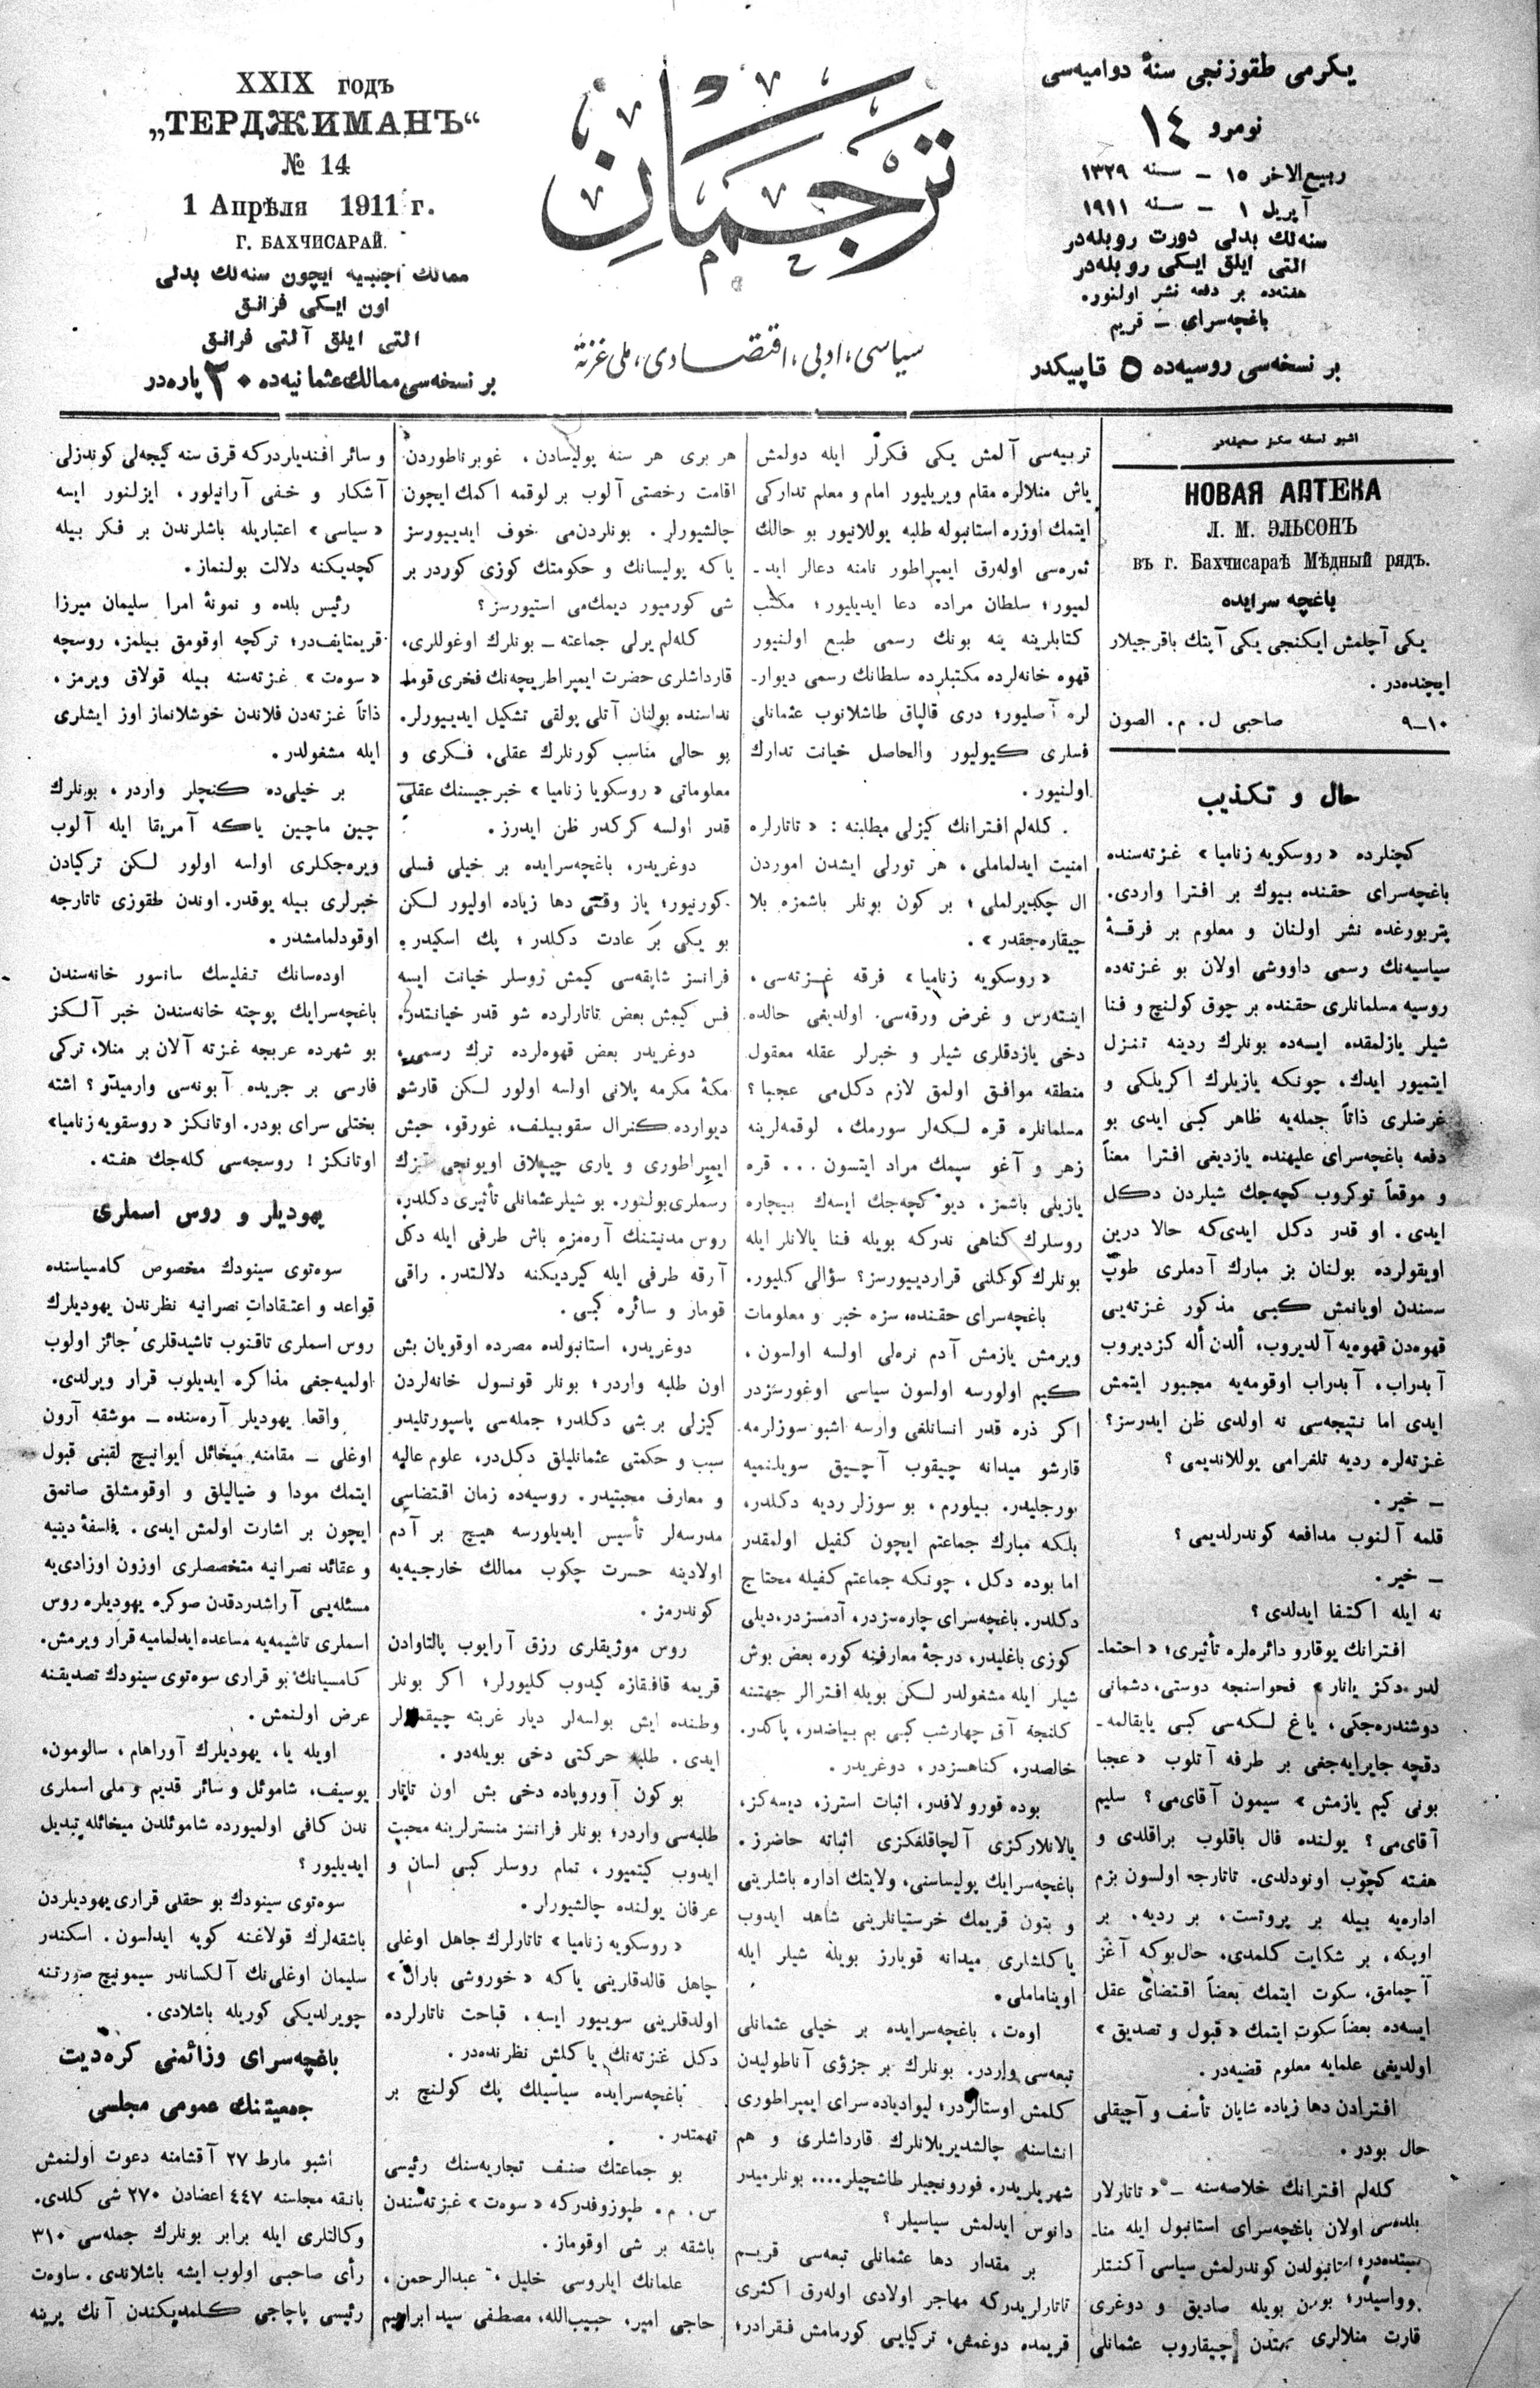 XXIX годъ
„ТЕРДЖИМАНЪ“
№ 14
1 Апрѣля 1911 г.
Г. БАХЧИСАРАЙ.
ممالك اجنبیه ایچون سنه‌لك بدلی
اون ایکی فرانق
التی ایلق آلتی فرانق
بر نسخه‌سی ممالك عثمانیه‌ده ۲۰ پاره‌در
ترجمان
سیاسی، ادبی، اقتصادی، ملی غزته
یکرمی طقوزنجی سنهٔ دوامیه‌سی
نومرو ١٤
ربیع الاخر ١٥ — سنه ١٣٢٩
آپریل ١ — سنه ١٩١١
سنه‌لك بدلی دورت روبله‌در
التی ایلق ایکی روبله‌در
هفته‌ده بر دفعه نشر اولنور.
باغچه‌سرای — قریم
بر نسخه‌سی روسیه‌ده ٥ قاپیکدر
اشبو نسخه سکز صحیفه‌در
НОВАЯ АПТЕКА
Л. М. ЭЛЬСОНЪ
въ г. Бахчисараѣ Мѣдный рядъ.
باغچه سرایده
یکی آچلمش ایکنجی یکی آپتك باقرجیلار
ایچنده‌در .
١٠—٩ صاحبی ل. م. الصون
حال و تکذیب
کچنلرده « روسکویه زنامیا » غزته‌سنده
باغچه‌سرای حقنده بیوك بر افترا واردی.
پتربورغده نشر اولنان و معلوم بر فرقهٔ
سیاسیه‌نك رسمی داووشی اولان بو غزته‌ده
روسیه مسلمانلری حقنده بر چوق کولنچ و فنا
شیلر یازلمقده ایسه‌ده بونلرك ردینه تنزل
ایتمیور ایدك، چونکه یازیلرك اکریلکی و
غرضلری ذاتاً جمله‌یه ظاهر کبی ایدی بو
دفعه باغچه‌سرای علیهنده یازدیغی افترا معناً
و موقعاً توکروب کچه‌جك شیلردن دکل
ایدی. او قدر دکل ایدی‌که حالا درین
اویقولرده بولنان بز مبارك آدملری طوپ
سسندن اویانمش کبی مذکور غزته‌یی
قهوه‌دن قهوه‌یه آلدیروب، ألدن أله کزدیروب
آبدراب، آبدراب اوقومه‌یه مجبور ایتمش
ایدی اما نتیجه‌سی نه اولدی ظن ایدرسز؟
غزته‌لره ردیه تلغرامی یوللاندیمی ؟
— خیر .
قلمه آلنوب مدافعه کوندرلدیمی ؟
— خیر .
نه ایله اکتفا ایدلدی ؟
افترانك یوقارو دائره‌لره تأثیری؛ « احتما-
لدر دکز یانار » فحواسنجه دوستی، دشمانی
دوشندره‌جکی، یاغ لکه‌سی کبی یایقالمه-
دقچه جایرایه‌جغی بر طرفه آتلوب « عجبا
بونی کیم یازمش » سیمون آقای‌می ؟ سلیم
آقای‌می ؟ یولنده فال باقلوب براقلدی و
هفته کچوب اونودلدی. تاتارجه اولسون بزم
اداره‌یه بیله بر پروتست، بر ردیه، بر
اوپکه، بر شکایت کلمدی، حال‌بوکه آغز
آچمامق، سکوت ایتمك بعضاً اقتضای عقل
ایسه‌ده بعضاً سکوت ایتمك « قبول و تصدیق »
اولدیغی علمایه معلوم قضیه‌در .
افترادن دها زیاده شایان تأسف و آجیقلی
حال بودر .
کله‌لم افترانك خلاصه‌سنه — « تاتارلار
بلده‌سی اولان باغچه‌سرای استانبول ایله منا-
سبتده‌در؛ استانبولدن کوندرلمش سیاسی آکنتلر
وواسیدر؛ بویله صادیق و دوغری
قارت منلالری چیقاروب عثمانلی
تربیه‌سی آلمش یکی فکرلر ایله دولمش
یاش منلالره مقام ویریلیور امام و معلم تدارکی
ایتمك اوزره استانبوله طلبه یوللانیور بو حالك
ثمره‌سی اوله‌رق ایمپراطور نامنه دعالر اید-
لمیور؛ سلطان مراده دعا ایدیلیور؛ مکتب
کتابلرینه ینه بونك رسمی طبع اولنیور
قهوه خانه‌لرده مکتبلرده سلطانك رسمی دیوار-
لره آصلیور؛ دری قالپاق طاشلانوب عثمانلی
فسلری کیولیور والحاصل خیانت تدارك
اولنیور .
کله‌لم افترانك کیزلی مطلبنه : « تاتارلره
امنیت ایدلماملی، هر تورلی ایشدن اموردن
ال چکدیرلملی ؛ بر کون بونلر باشمزه بلا
چیقاره‌جقدر » .
« روسکویه زنامیا » فرقه غزته‌سی ،
اینته‌رس و غرض ورقه‌سی اولدیغی حالده
دخی یازدقلری شیلر و خبرلر عقله معقول
منطقه موافق اولمق لازم دکل‌می عجبا ؟
مسلمانلره قره لکه‌لر سورمك، لوقمه‌لرینه
زهر و آغو سپمك مراد ایتسون ... قره
یازیلی باشمز، دیو کچه‌جك ایسه‌ك بیچاره
روسلرك کناهی ندرکه بویله فنا یالانلر ایله
بونلرك کوکلنی قاردیریورسز؟ سؤالی کلیور.
باغچه‌سرای حقنده، سزه خبر و معلومات
ویرمش یازمش آدم نره‌لی اولسه اولسون ،
کیم اولورسه اولسون سیاسی اوغورسزدر
اکر ذره قدر انسانلغی وارسه اشبو سوزلرمه
قارشو میدانه چیقوب آچیق سویلنمیه
بورجلیدر. بیلورم ، بو سوزلر ردیه دکلدر،
بلکه مبارك جماعتم ایچون کفیل اولمقدر
اما بوده دکل ، چونکه جماعتم کفیله محتاج
دکلدر. باغچه‌سرای چاره‌سزدر، آدمسزدر، دیلی
کوزی باغلیدر، درجهٔ معارفینه کوره بعض بوش
شیلر ایله مشغولدر لکن بویله افترالر جهتنه
کلنجه آق چهارشب کبی بم بیاضدر، پاکدر.
خالصدر، کناهسزدر ، دوغریدر .
بوده قورو لافدر، اثبات استرز، دیسه‌کز،
یالانلارکزی آلچاقلقکزی اثباته حاضرز .
باغچه‌سرایك پولیساسنی، ولایتك اداره باشلرینی
و بتون قریمك خرستیانلرینی شاهد ایدوب
یاکلشلری میدانه قویارز بویله شیلر ایله
اویناماملی .
اوه‌ت ، باغچه‌سرایده بر خیلی عثمانلی
تبعه‌سی واردر. بونلرك بر جزؤی آناطولیدن
کلمش اوستالردر؛ لیوادیاده سرای ایمپراطوری
انشاسنه چالشدیریلانلرك قارداشلری و هم
شهریلریدر. فورونجیلر طاشچیلر.... بونلرمیدر
دانوس ایدلمش سیاسیلر ؟
بر مقدار دها عثمانلی تبعه‌سی قریم
تاتارلریدرکه مهاجر اولادی اوله‌رق اکثری
قریمده دوغمش، ترکیایی کورمامش فقرادر؛
هر بری هر سنه پولیسادن ، غوبرناطوردن
اقامت رخصتی آلوب بر لوقمه اکمك ایچون
چالشیورلر . بونلردن‌می خوف ایدییورسز
یاکه پولیسانك و حکومتك کوزی کوردر بر
شی کورمیور دیمك‌می استیورسز ؟
کله‌لم یرلی جماعته — بونلرك اوغوللری،
قارداشلری حضرت ایمپراطریچه‌نك فخری قوما-
نداسنده بولنان آتلی پولقی تشکیل ایدییورلر.
بو حالی مناسب کورنلرك عقلی، فکری و
معلوماتی « روسکویا زنامیا » خبرجیسنك عقلی
قدر اولسه کرکدر ظن ایدرز .
دوغریدر، باغچه‌سرایده بر خیلی فسلی
کورنیور؛ یاز وقتی دها زیاده اولیور لکن
بو یکی بر عادت دکلدر ؛ پك اسکیدر .
فرانسز شاپقه‌سی کیمش روسلر خیانت ایسه
فس کیمش بعض تاتارلرده شو قدر خیانتدر.
دوغریدر بعض قهوه‌لرده ترك رسمی،
مکهٔ مکرمه پلانی اولسه اولور لکن قارشو
دیوارده کنرال سقوبیلف، غورقو، حبش
ایمپراطوری و یاری چیپلاق اویونجی قیزك
رسملری بولنور. بو شیلر عثمانلی تأثیری دکلدر،
روس مدنیتنك آره‌مزه باش طرفی ایله دکل
آرقه طرفی ایله کیردیکنه دلالتدر. راقی
قومار و سائره کبی .
دوغریدر، استانبولده مصرده اوقویان بش
اون طلبه واردر؛ بونلر قونسول خانه‌لردن
کیزلی بر شی دکلدر؛ جمله‌سی پاسپورتلیدر
سبب و حکمتی عثمانلیلق دکل‌در، علوم عالیه
و معارف محبتیدر. روسیه‌ده زمان اقتضاسی
مدرسه‌لر تأسیس ایدیلورسه هیچ بر آدم
اولادینه حسرت چکوب ممالك خارجیه‌یه
کوندرمز .
روس موژیقلری رزق آرایوب پالتاوادن
قریمه قافقازه کیدوب کلیورلر؛ اکر بونلر
وطنده ایش بولسه‌لر دیار غربته چیقمازلر
ایدی. طلبه حرکتی دخی بویله‌در .
بو کون آوروپاده دخی بش اون تاتار
طلبه‌سی واردر؛ بونلر فرانسز منسترلرینه محبت
ایدوب کیتمیور ، تمام روسلر کبی لسان و
عرفان یولنده چالشیورلر .
« روسکویه زنامیا » تاتارلرك جاهل اوغلی
جاهل قالدقلرینی یاکه « خوروشی باران »
اولدقلرینی سوییور ایسه ، قباحت تاتارلرده
دکل غزته‌نك یاکلش نظرنده‌در .
باغچه‌سرایده سیاسیلك پك کولنچ بر
تهمتدر .
بو جماعتك صنف تجاریه‌سنك رئیسی
س. م. طپوزوفدرکه « سوه‌ت » غزته‌سندن
باشقه بر شی اوقوماز .
علمانك ایلروسی خلیل ، عبدالرحمن ،
حاجی امیر، حبیب‌الله، مصطفی سید ابراهیم
و سائر افندیلردرکه قرق سنه کیجه‌لی کوندزلی
آشکار و خفی آرانیلور، ایزلنور ایسه
« سیاسی » اعتباریله باشلرندن بر فکر بیله
کچدیکنه دلالت بولنماز .
رئیس بلده و نمونهٔ امرا سلیمان میرزا
قریمتایف‌در؛ ترکچه اوقومق بیلمز، روسچه
« سوه‌ت » غزته‌سنه بیله قولاق ویرمز ،
ذاتاً غزته‌دن فلاندن خوشلانماز اوز ایشلری
ایله مشغولدر .
بر خیلی‌ده کنچلر واردر ، بونلرك
چین ماچین یاکه آمریقا ایله آلوب
ویره‌جکلری اولسه اولور لکن ترکیادن
خبرلری بیله یوقدر. اوندن طقوزی تاتارجه
اوقودلمامشدر .
اوده‌سانك تفلیسك سانسور خانه‌سندن
باغچه‌سرایك پوچته خانه‌سندن خبر آلکز
بو شهرده عربجه غزته آلان بر منلا، ترکی
فارسی بر جریده آبونه‌سی وارمیدر ؟ اشته
بختلی سرای بودر. اوتانکز « روسقویه زنامیا »
اوتانکز ! روسجه‌سی کله‌جك هفته .
یهودیلر و روس اسملری
سوه‌توی سینودك مخصوص کامسیاسنده
قواعد و اعتقادات نصرانیه نظرندن یهودیلرك
روس اسملری تاقنوب تاشیدقلری جائز اولوب
اولمیه‌جغی مذاکره ایدیلوب قرار ویرلدی.
واقعا یهودیلر آره‌سنده — موشقه آرون
اوغلی — مقامنه میخائل ایوانیچ لقبنی قبول
ایتمك مودا و ضیالیلق و اوقومشلق صاتمق
ایچون بر اشارت اولمش ایدی. فلسفهٔ دینیه
و عقائد نصرانیه متخصصلری اوزون اوزادی‌یه
مسئله‌یی آراشدردقدن صوکره یهودیلره روس
اسملری تاشیمه‌یه مساعده ایدلمامیه قرار ویرمش.
کامسیانك بو قراری سوه‌توی سینودك تصدیقنه
عرض اولنمش .
اویله یا، یهودیلرك آوراهام ، سالومون،
یوسیف، شاموئل و سائر قدیم و ملی اسملری
ندن کافی اولمیورده شاموئلدن میخائله تبدیل
ایدیلیور ؟
سوه‌توی سینودك بو حقلی قراری یهودیلردن
باشقه‌لرك قولاغنه کوپه ایدلسون . اسکندر
سلیمان اوغلی‌نك آلکساندر سیمونیچ صورتنه
چویرلدیکی کوریله باشلادی.
باغچه‌سرای وزائمنی کره‌دیت
جمعیتنك عمومی مجلسی
اشبو مارط ٢٧ آقشامنه دعوت اولنمش
بانقه مجلسنه ٤٤٧ اعضادن ٢٧٠ شی کلدی.
وکالتلری ایله برابر بونلرك جمله‌سی ٣١٠
رأی صاحبی اولوب ایشه باشلاندی . ساوه‌ت
رئیسی پاچاجی کلمدیکندن آنك یرینه